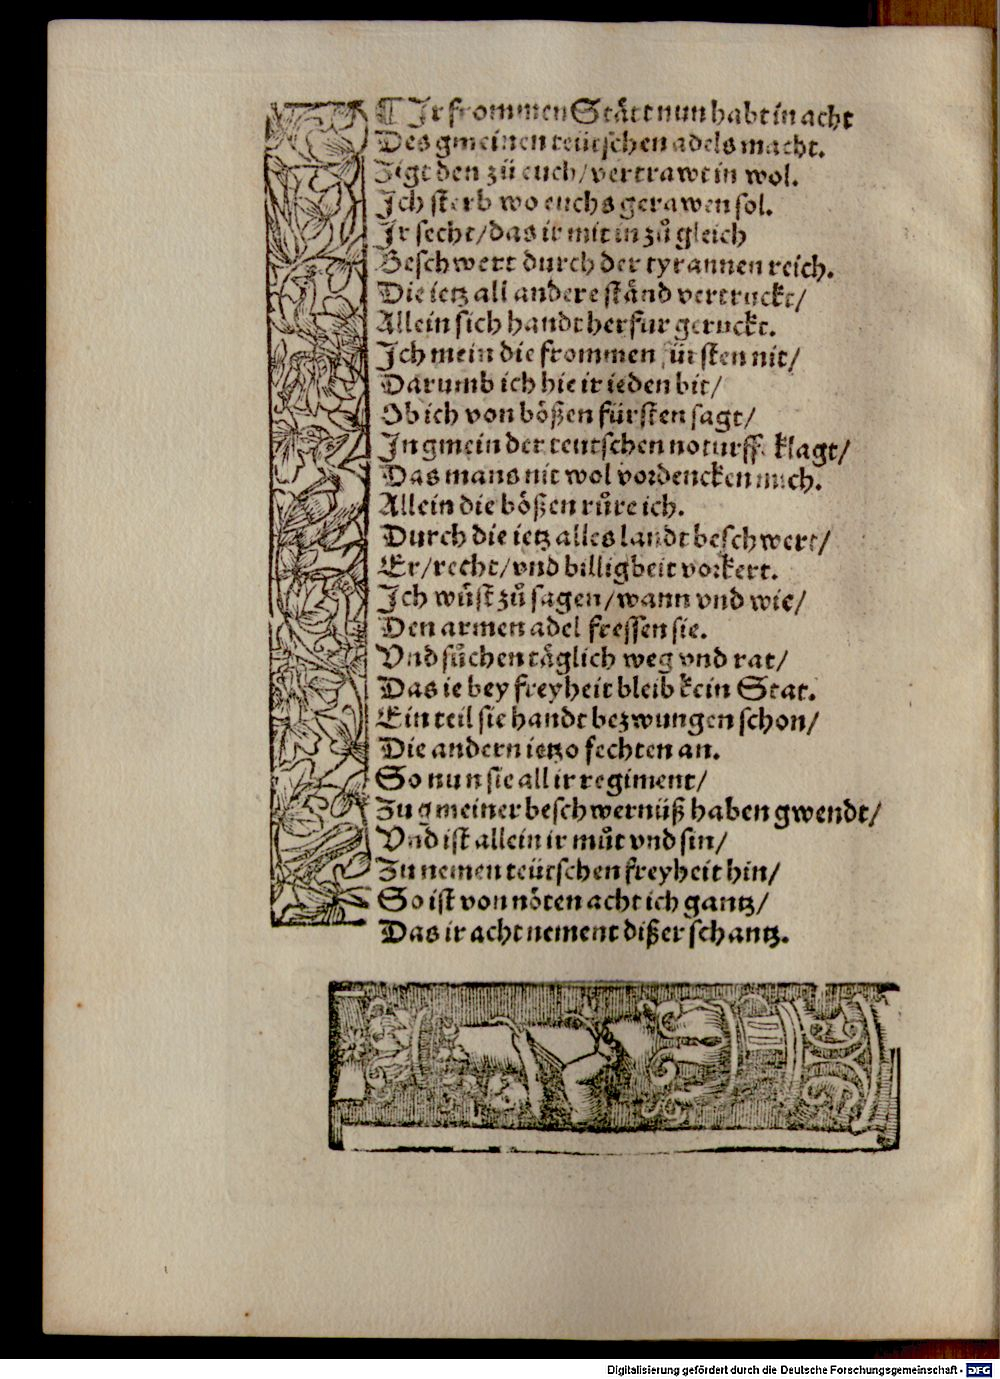 ¶ Jr frommen Stätt nun habt in acht
Des gmeinen teütschen adels macht.
Zigt den zů euch/vertrawt in wol.
Jch sterb wo euchs gerawen sol.
Jr secht/das ir mit in zů gleich
Beschwert durch der tyrannen reich.
Die ietz all andere ständ vertruckt/
Allein sich handt herfur geruckt.
Jch mein die frommen fürsten nit/
Darumb ich hie ir ieden bit/
Ob ich von bößen fürsten sagt/
Jn gmein der teutschen noturfft klagt/
Das mans nit wol vordencken mich.
Allein die bößen růre ich.
Durch die ietz alles landt beschwert/
Er/recht/vnd billigheit vorkert.
Jch wůst zů sagen/wann vnd wie/
Den armen adel fressen sie.
Vnd sůchen täglich weg vnd rat/
Das ie bey freyheit bleib kein Stat.
Ein teil sie handt bezwungen schon/
Die andern ietzo fechten an.
So nun sie all ir regiment/
Zu gmeiner beschwernüß haben gwendt/
Vnd ist allein ir můt vnd sin/
Zu nemen teütschen freyheit hin/
So ist von nöten acht ich gantz/
Das ir acht nement dißer schantz.
Digitalisierung gefördert durch die Deutsche Forschungsgemeinschaft - DFG